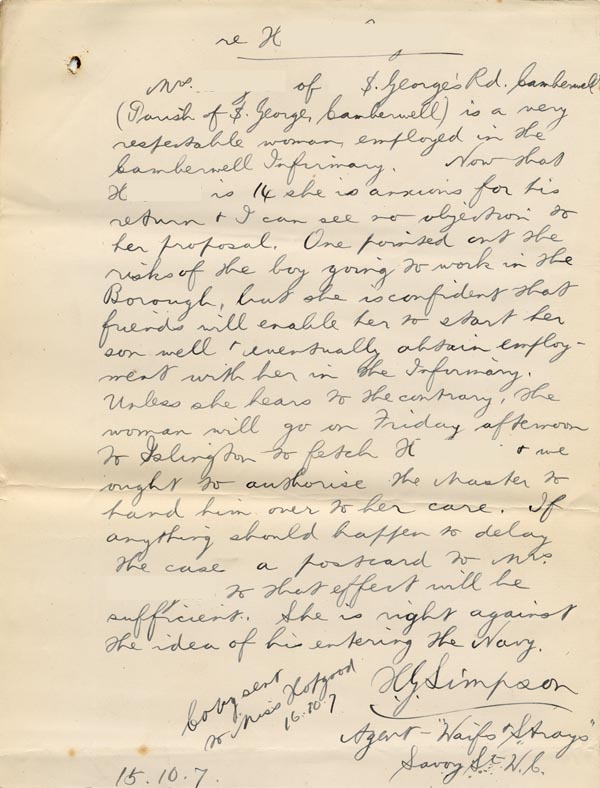 re H
Mrs. of S. George's Rd. Camberwell
(Parish of S. George, Camberwell) is a very
respectable woman, employed in the
Camberwell Infirmary. Now that
H is 14 she is anxious for his
return & I can see no objection to
her proposal. One pointed out the
risks of the boy going to work in the
Borough, but she is confident that
friends will enable her to start her
son well & eventually obtain employ-
ment with her in the Infirmary.
Unless she hears to the contrary, the
woman will go on Friday afternoon
to Islington to fetch H & we
ought to authorise the Master to
hand him over to her care. If
anything should happen to delay
the case a postcard to Mrs.
to that effect will be
sufficient. She is right against
the idea of his entering the Navy.
H.G. Simpson
Agent - "Waifs & Strays"
Savoy St. W.C.
Copy sent
to Miss Hopgood
16.10.7
15.10.7.